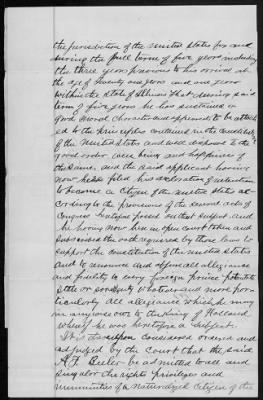 the jurisdiction of the United States for and
during the full term of five years including
the three years previous to his arrival at
the age of twenty one years and one year
within the State of Illinois that during said
term of five years he has sustained a
good moral character and appeared to be attach
ed to the principles contained in the Constitution
of the United States and well disposed to the
good order well being and happiness of
the same, and the said applicant having
now here filed his declaration of intention
to become a Citizen of the United States ac-
cording to the provisions of the several acts of
Congress heretofore passed on that subject and
he having now here in open court taken and
subscribed the oath required by those laws to
support the constitution of the United States
and to renounce and abjure all allegiance
and fidelity to every foreign prince potentate
state or sovereignty whatever and more par-
ticularly all allegiance which he may
in anywise owe to the King of Holland
whereof he was heretofore a subject.
It is thereupon considered ordered and
adjudged by the Court that the said
A. F. Beeler be admitted to all and
singular the rights privileges and
immunities of a Naturalized Citizen of the